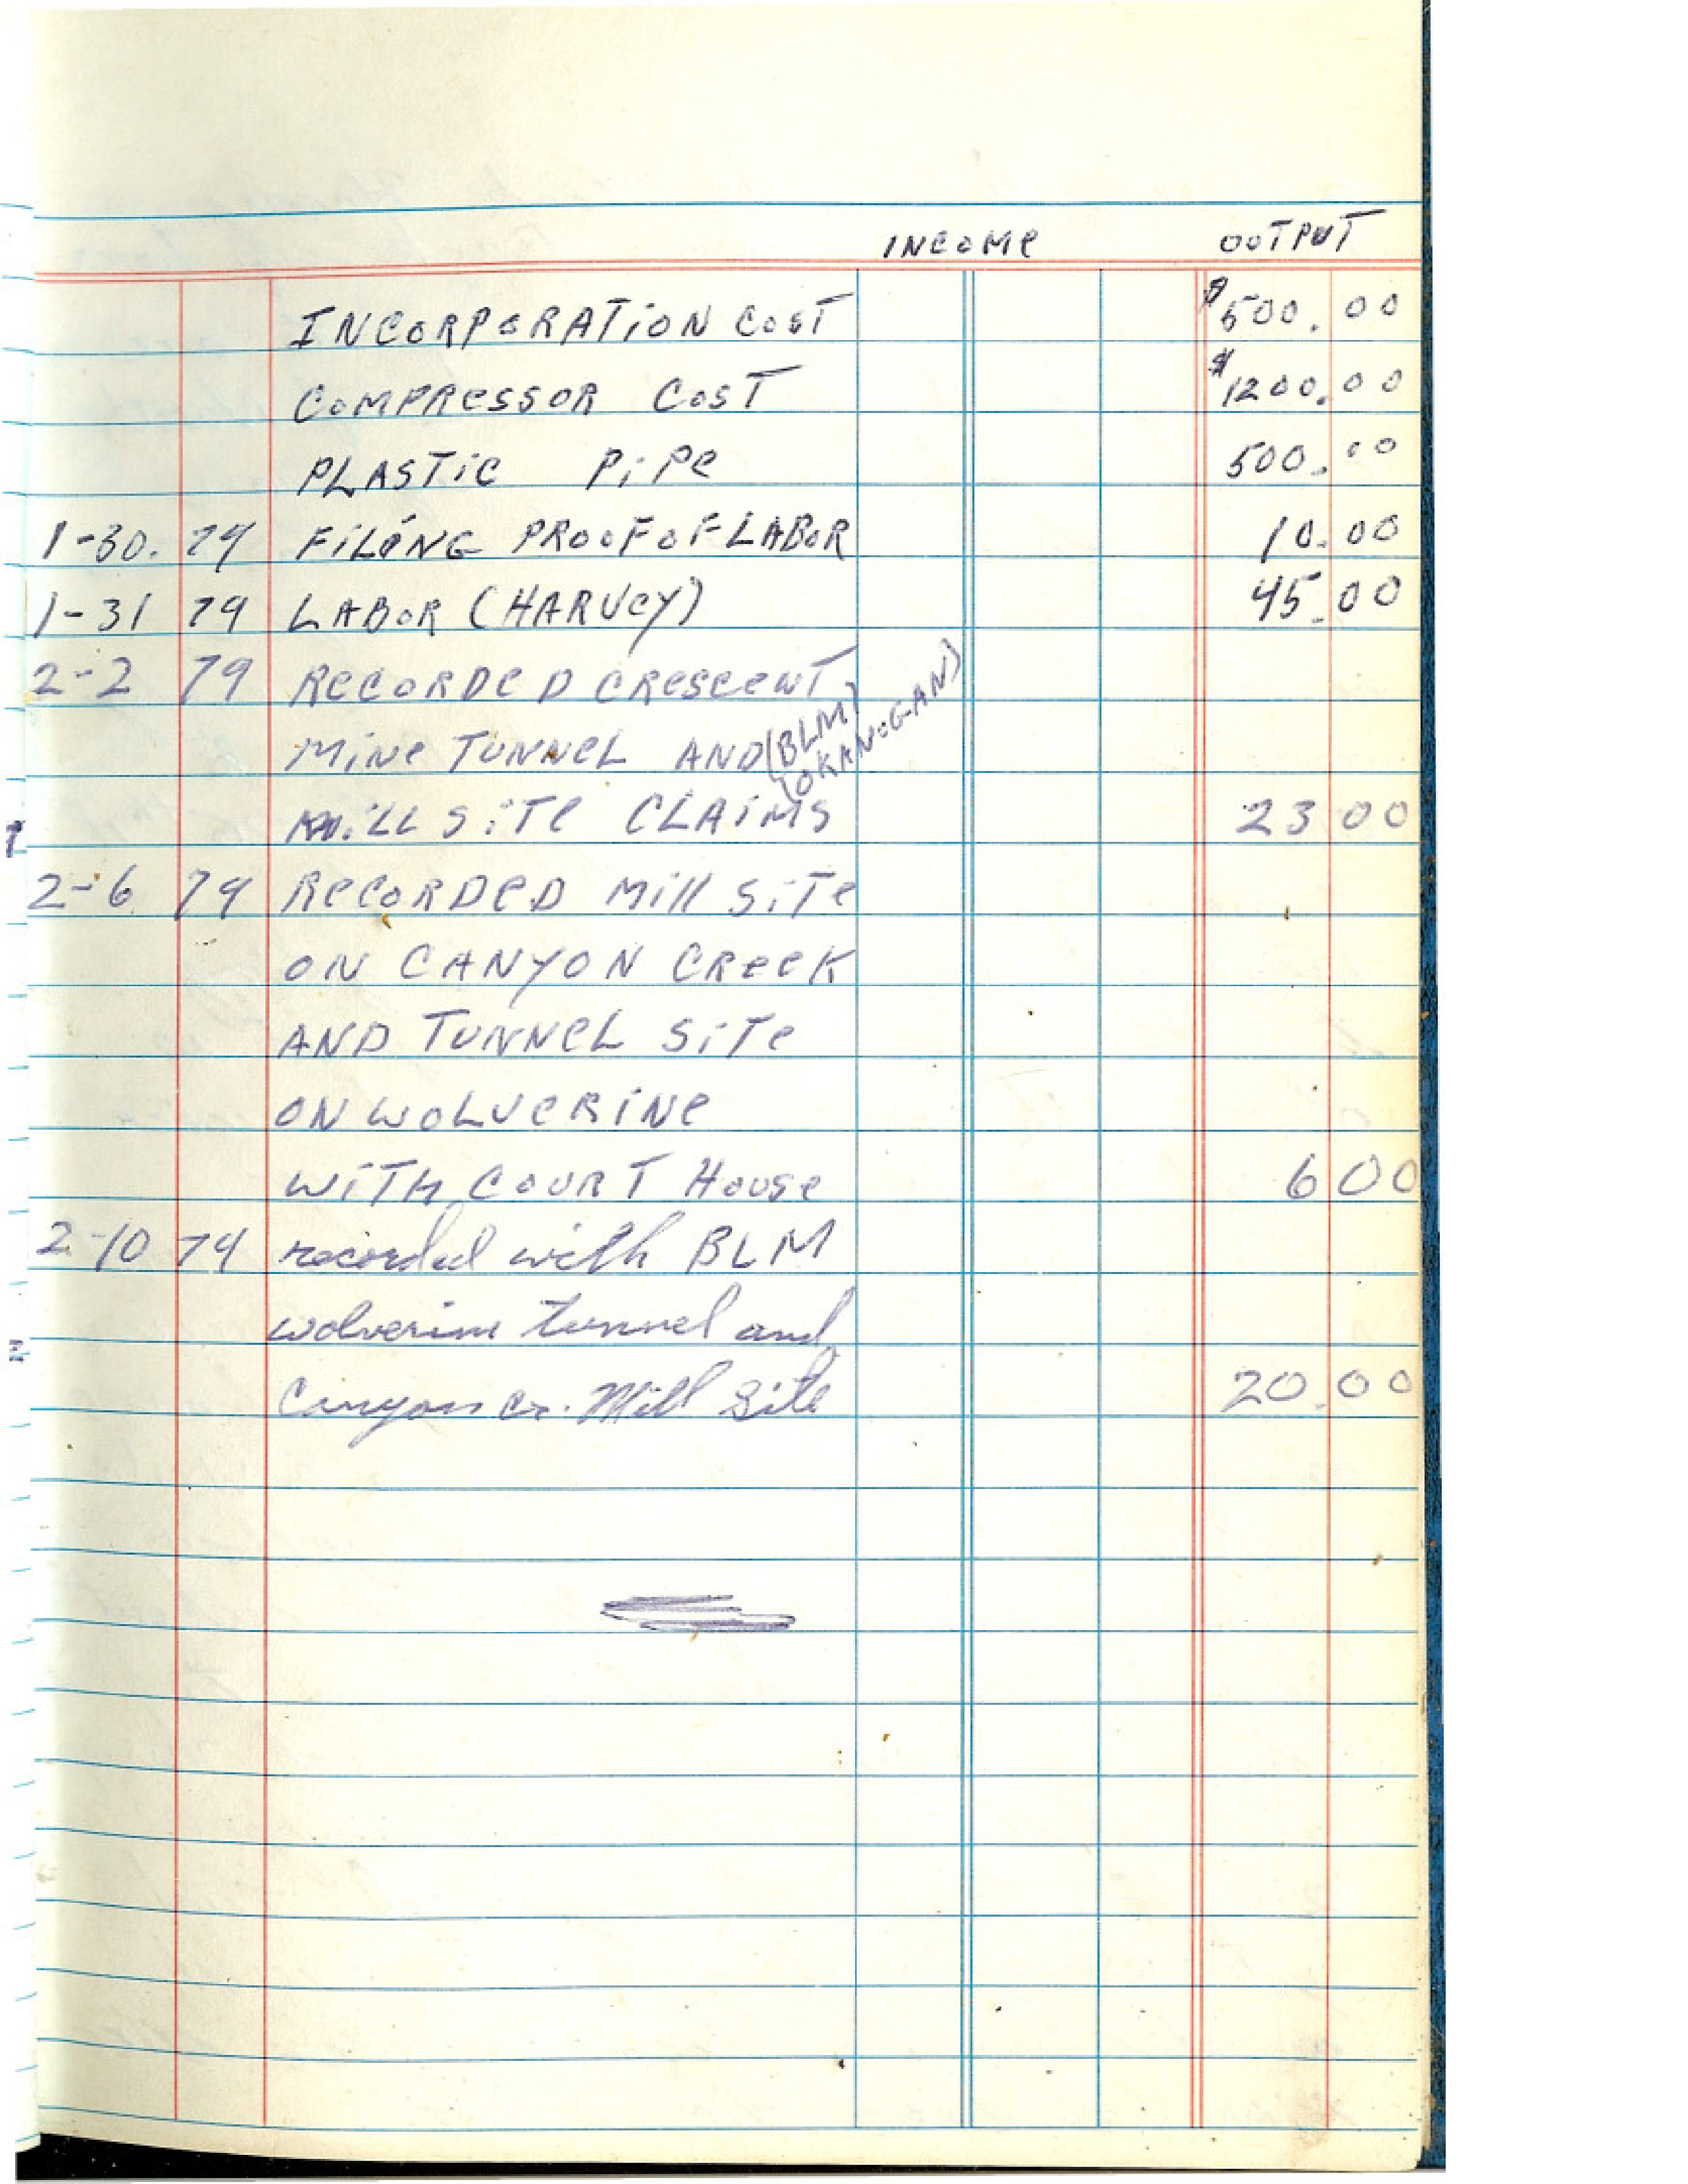 INCOME OUTPUT
INCORPORATION COST $500.00
COMPRESSOR COST $1200.00
PLASTIC PIPE 500.00
1-30. 79 FILING PROOF OF LABOR 10.00
1-31 79 LABOR (HARVEY) 45.00
2-2 79 RECORDED CRESCENT
MINE TUNNEL AND (BLM)
(OKANOGAN)
MILL SITE CLAIMS 23 00
2-6 79 RECORDED Mill SITE
ON CANYON CREEK
AND TUNNEL SITE
ON WOLVERINE
WITH COURT HOUSE 6 00
2-10 79 recorded with BLM
wolverine tunnel and
Canyon Cr. Mill Site 20.00